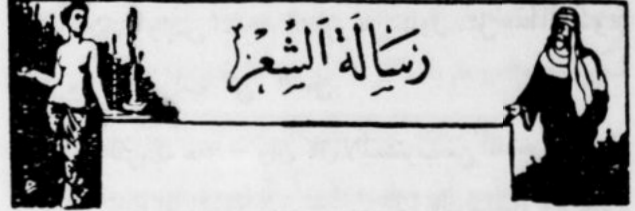 رسَالة الشِّعرْ